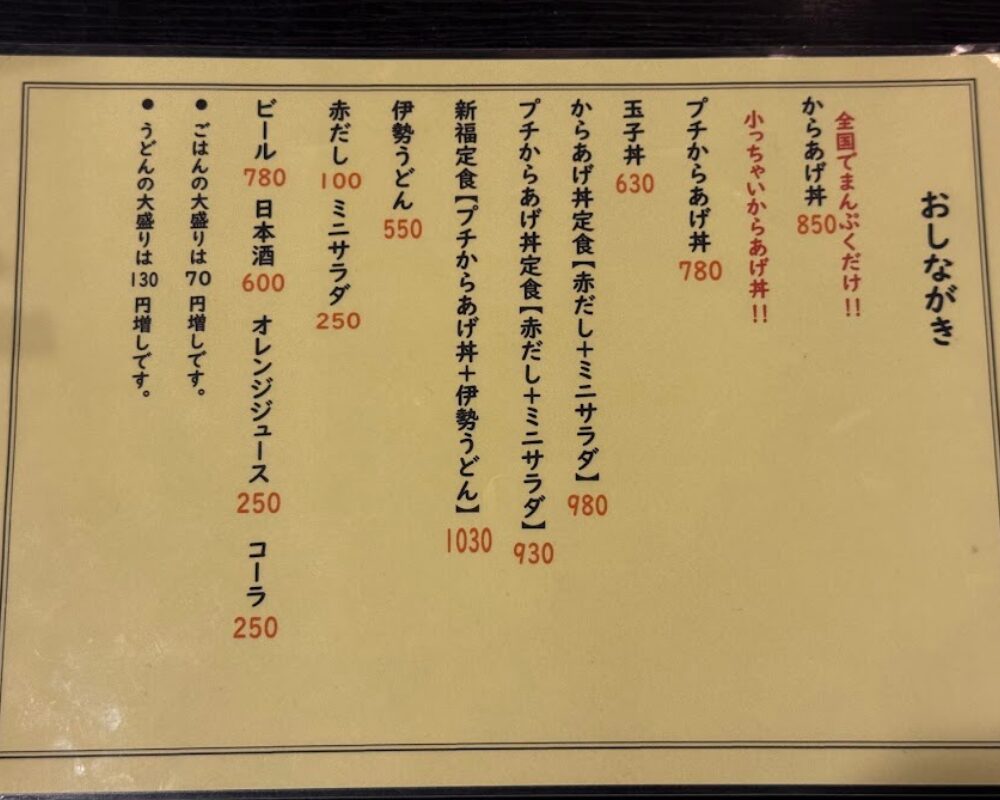 おしながき
全国でまんぷくだけ!!
からあげ丼 850
小っちゃいからあげ丼!!
プチからあげ丼 780
玉子丼 630
からあげ丼定食【赤だし+ミニサラダ】 980
プチからあげ丼定食【赤だし+ミニサラダ】 930
新福定食【プチからあげ丼+伊勢うどん】 1030
伊勢うどん 550
赤だし 100 ミニサラダ 250
ビール 780 日本酒 600 オレンジジュース 250 コーラ 250
●ごはんの大盛りは 70 円増しです。
●うどんの大盛りは 130 円増しです。